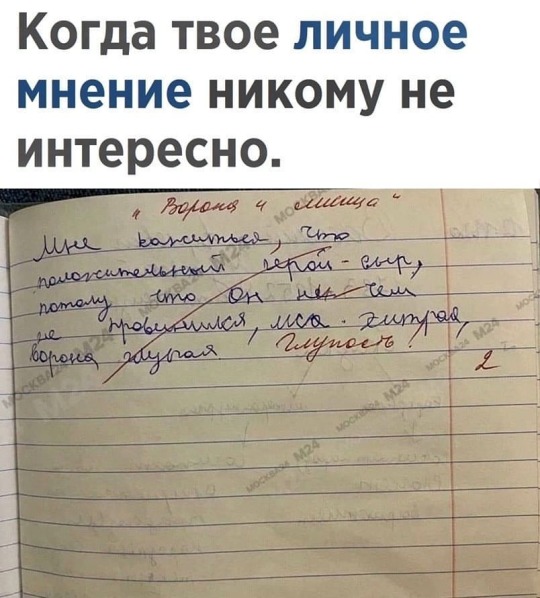 Когда твое личное
мнение никому не
интересно.
" Ворона и лисица "
Мне кажиться, что
положительный герой - сыр,
потому что он не чем
не провинился, лиса - хитрая,
ворона глупая Глупость!
2
МОСКВА24 М24